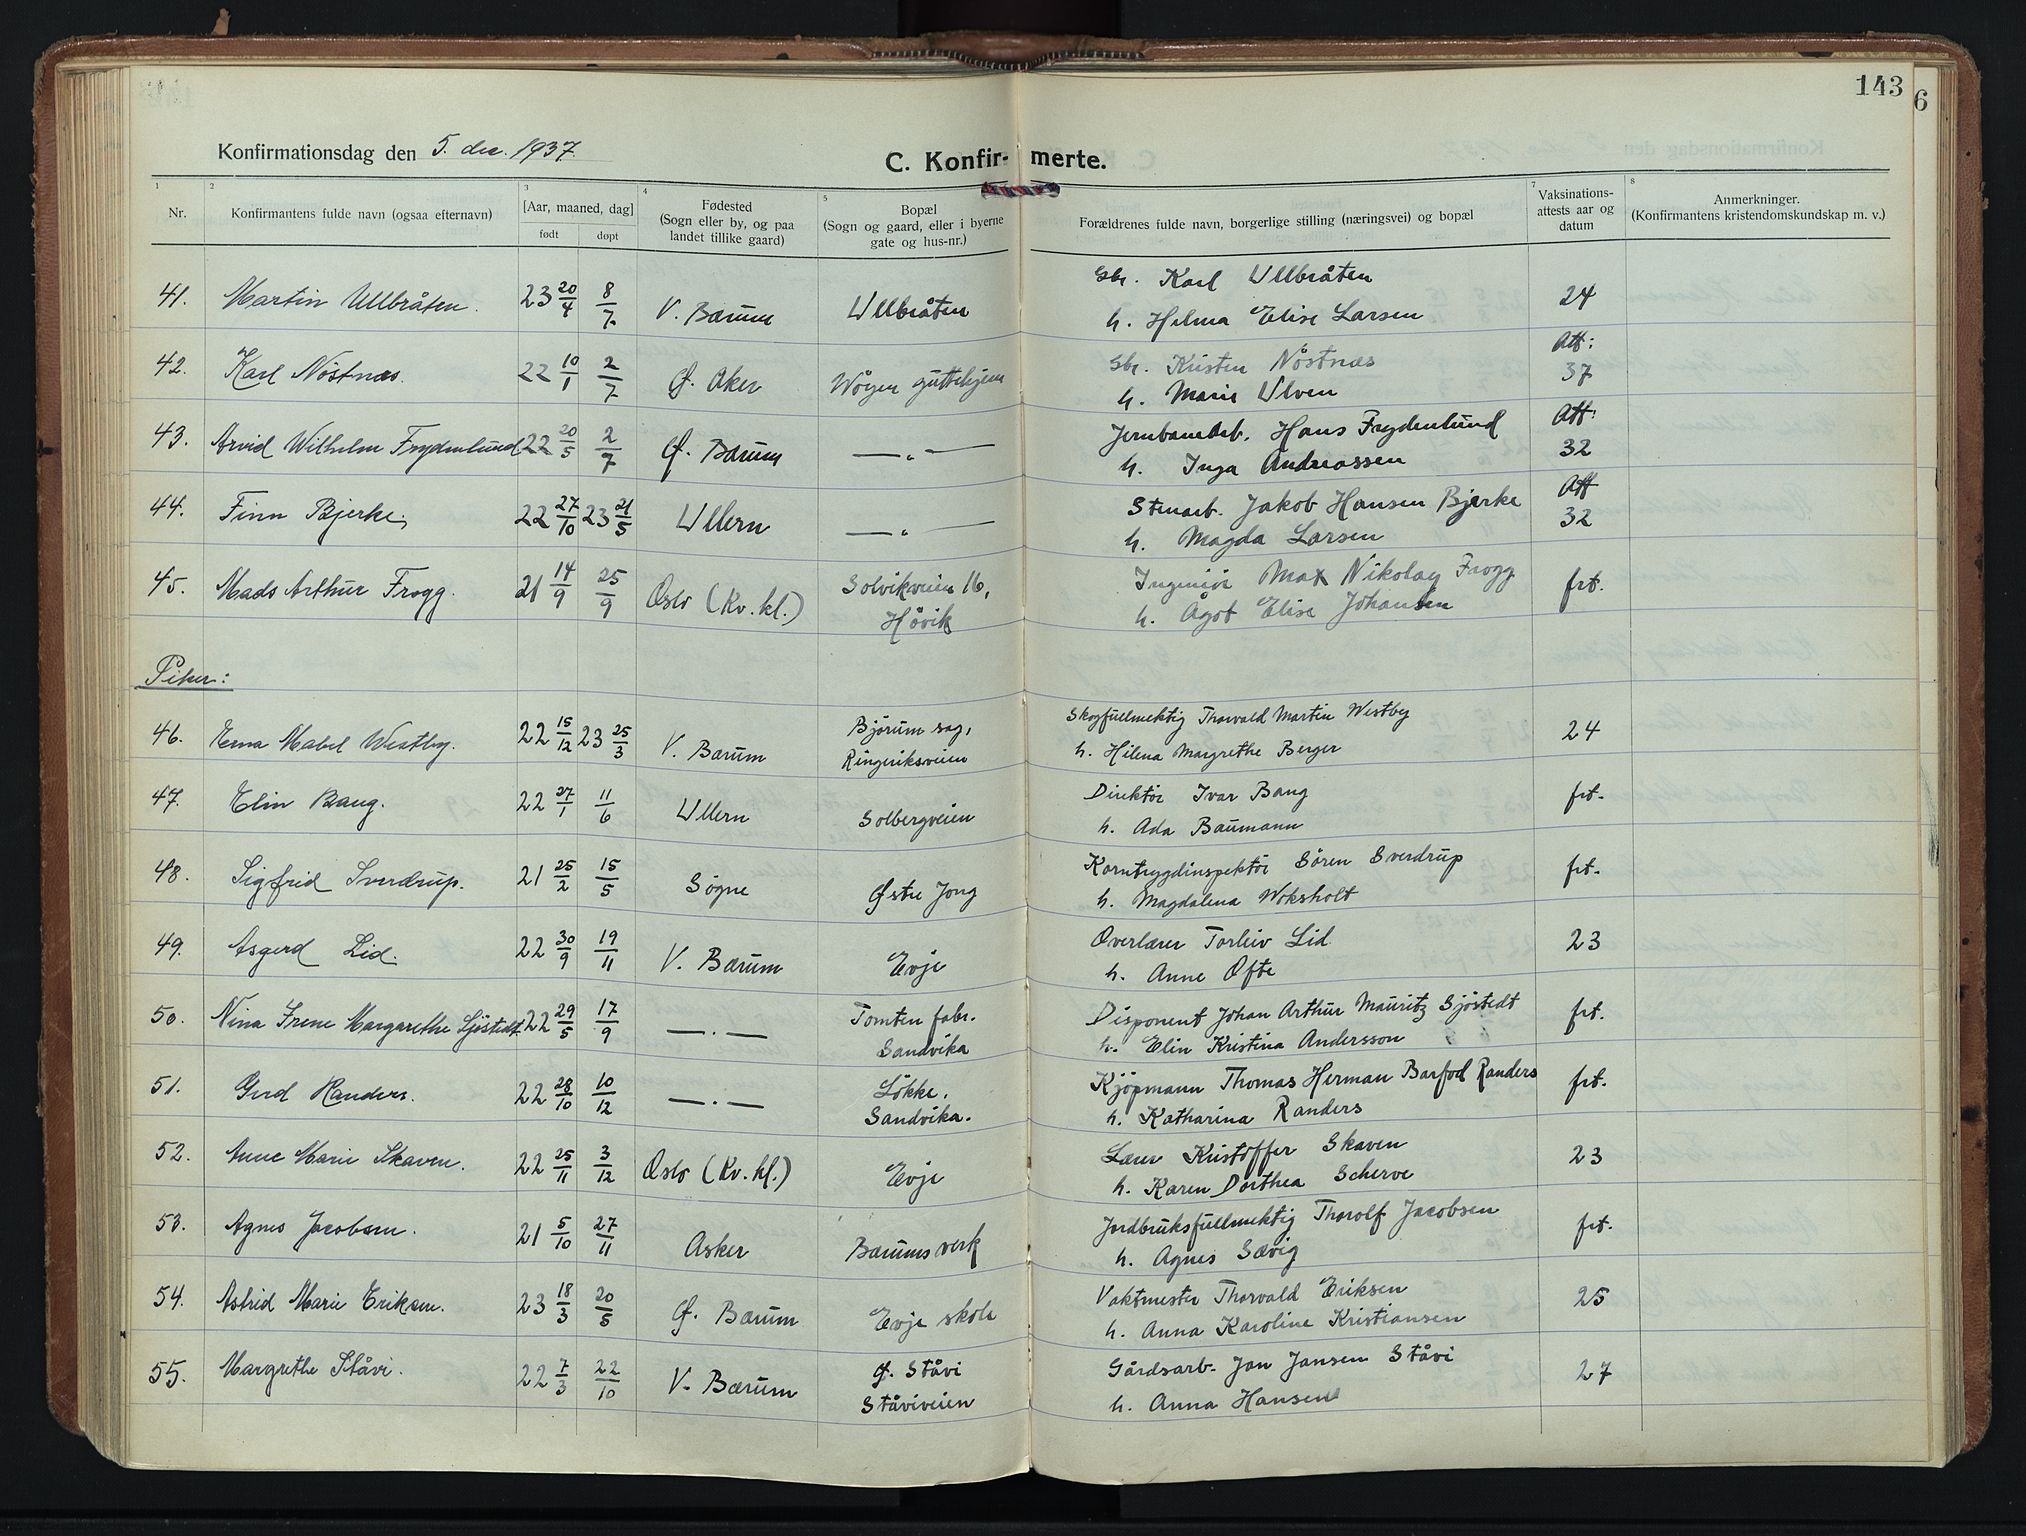 143
6
Konfirmationsdag den 5. dec. 1937.
C. Konfir- merte.
1 2 3 4 5 7 8
Nr.
Konfirmantens fulde navn (ogsaa efternavn)
[Aar, maaned, dag]
født døpt
Fødested
(Sogn eller by, og paa
landet tillike gaard)
Bopæl
(Sogn og gaard, eller i byerne
gate og hus-nr.)
Forældrenes fulde navn, borgerlige stilling (næringsvei) og bopæl
Vaksinations-
attests aar og
datum
Anmerkninger.
(Konfirmantens kristendomskundskap m. v.)
41. Martin Ullbråten. 23 20/4 8/7 V. Bærum Ullbråten Gbr. Karl Ullbråten
h. Helma Elise Larsen 24
42. Karl Nöstnæs. 22 10/1 2/7 Ø. Aker Wøyen guttehjem Gbr. Kristen Nöstnæs
h. Marie Ulven Att: 37
43. Arvid Wilhelm Frydenlund 22 20/5 2/7 Ø. Bærum —„— Jernbanearb. Hans Frydenlund
h. Inga Andreassen Att: 32
44. Finn Bjerke, 22 27/10 23 21/5 Ullern —„— Stenarb. Jakob Hansen Bjerke
h. Magda Larsen Att 32
45. Mads Arthur Frogg. 21 14/9 25/9 Oslo (Kv. kl.) Solvikveien 16,
Høvik
Ingeniør Max Nikolay Frogg
h. Ågot Elise Johansen frt.
Piker:
46. Erna Mabel Westby. 22 15/12 23 25/3 V. Bærum Bjørum sag,
Ringeriksveien
Skogfullmektig Thorvald Martin Westby
h. Helena Margrethe Berger 24
47. Elin Bang. 22 27/1 11/6 Ullern Solbergveien Direktør Ivar Bang
h. Ada Baumann frt.
48. Sigfrid Sverdrup. 21 25/2 15/5 Søgne Østre Jong Korntrygdinspektør Sören Sverdrup
h. Magdalena Woksholt frt.
49. Asgerd Lid. 22 30/9 19/11 V. Bærum Evje Overlærer Torleiv Lid
h. Anne Ofte 23
50. Nina Irene Margarethe Sjöstedt. 22 29/5 17/9 —„— Tomten fabr.
Sandvika
Disponent Johan Arthur Mauritz Sjöstedt
h. Elin Kristina Andersson frt.
51. Gerd Randers. 22 28/10 10/12 —„— Løkke,
Sandvika.
Kjøpmann Thomas Herman Barfod Randers
h. Katharina Randers frt.
52. Anne Marie Skaven. 22 25/11 3/12 Oslo (Kv. kl.) Evje Lærer Kristoffer Skaven
h. Karen Dorthea Scherve 23
53. Agnes Jacobsen. 21 5/10 27/11 Asker Bærums verk Jordbruksfullmektig Thorolf Jacobsen
h. Agnes Sævig frt.
54. Astrid Marie Eriksen. 23 18/3 20/5 Ø. Bærum Evje skole Vaktmester Thorvald Eriksen
h. Anna Karoline Kristiansen 25
55. Margrethe Ståvi. 22 7/3 22/10 V. Bærum Ø. Ståvi
Ståviveien
Gårdsarb. Jan Jansen Ståvi
h. Anna Hansen 27